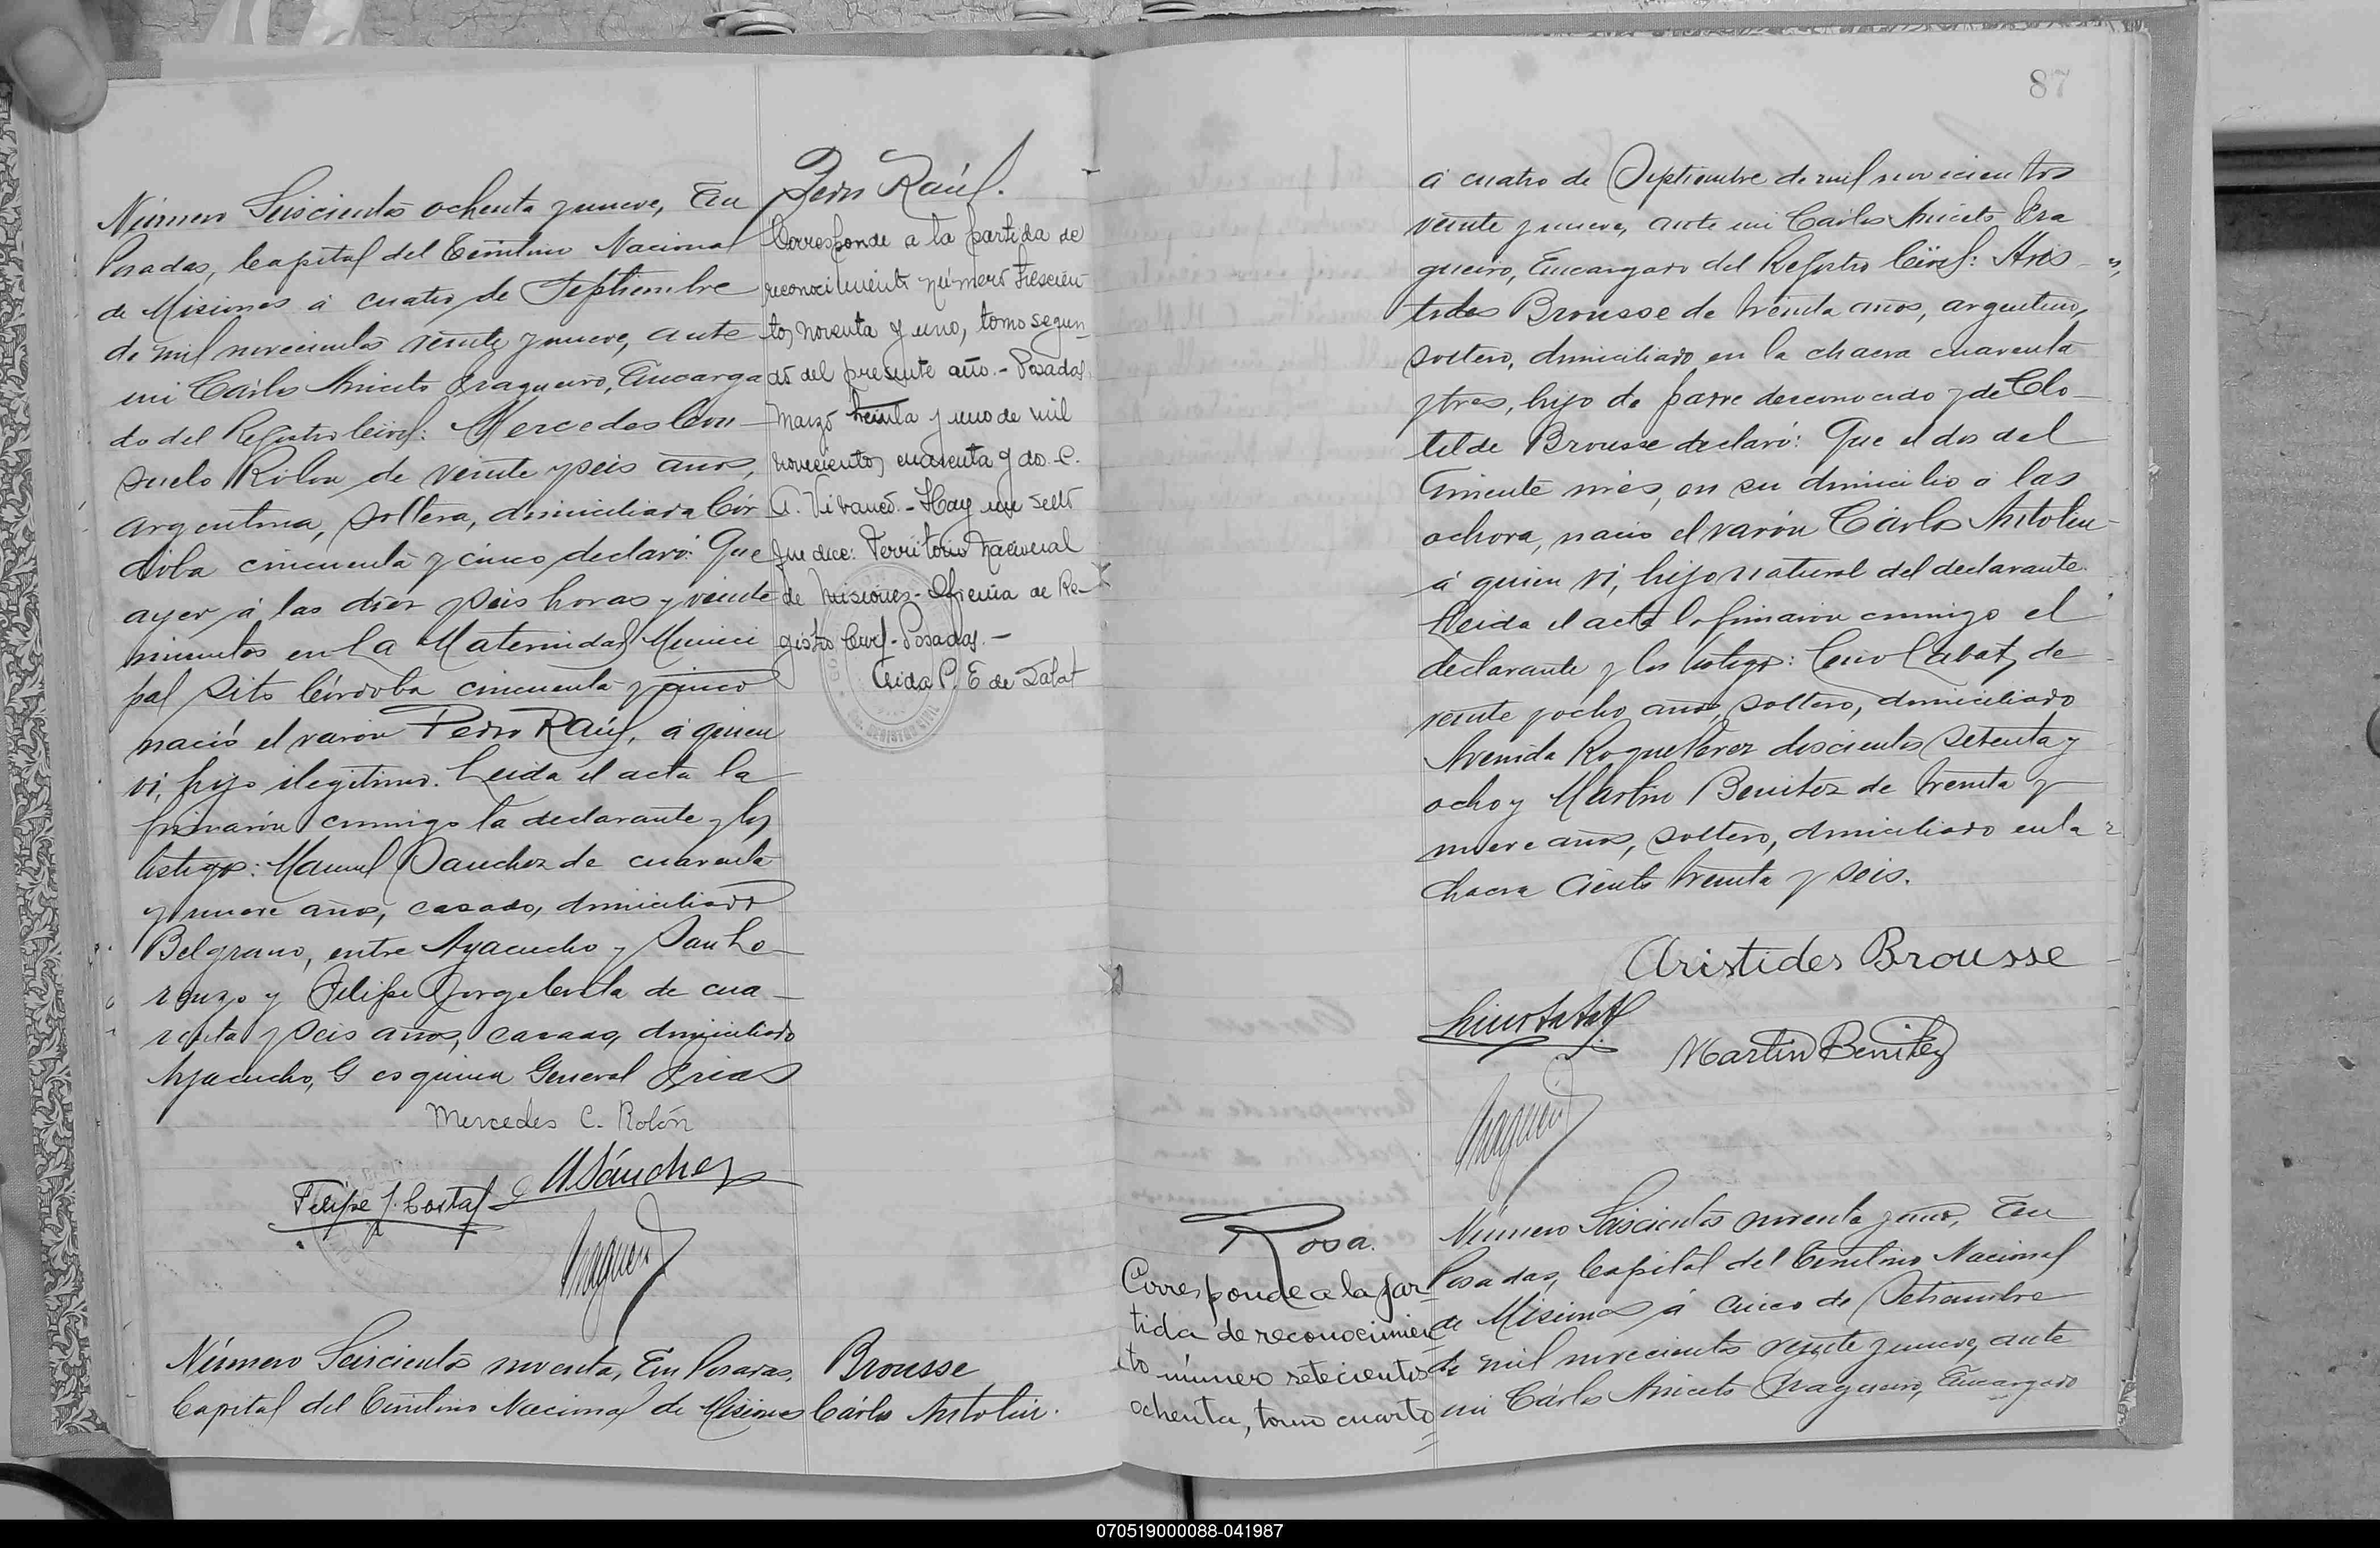 Número Seiscientos ochenta y nueve, En
Posadas, Capital del Territorio Nacional
de Misiones á cuatro de Septiembre
de mil novecientos veinte y nueve, ante
mi Cárlos Aniceto Fragueiro, Encarga
do del Registro Civil: Mercedes Con-
suelo Rolon de veinte y seis años,
argentina, soltera, domiciliada Cór
doba cincuenta y cinco declaró: Que
ayer á las diez y seis horas y veinte
minutos en La Maternidad Munici
pal sito Córdoba cincuenta y cinco
nació el varón Pedro Raúl, á quien
vi, hijo ilegítimo. Leida el acta la
firmaron conmigo la declarante y los
testigos: Manuel Sanchez de cuarenta
y nueve años, casado, domiciliado
Belgrano, entre Ayacucho y San Lo-
renzo y Felipe Jorge de cua-
renta y seis años, casado, domiciliado
Ayacucho, esquina General Frias
Mercedes C. Rolón
M Sánchez
Felipe J. Costal
Fragueiro
Pedro Raúl.
Corresponde a la partida de
reconocimiento número trescien
tos noventa y uno, tomo segun-
do del presente año.- Posadas,
marzo treinta y uno de mil
novecientos cuarenta y do. C.
A. Vivanco.- Hay un sello
que dice: Territorio Nacional
de Misiones- Oficina de Re-
gistro Civil- Posadas.-
P. E de Labat
Número Seiscientos noventa, En Posadas,
Capital del Territorio Nacional de Misiones
Brousse
Cárlos Antolin.
87
á cuatro de Septiembre de mil novecientos
veinte y nueve, ante mi Cárlos Aniceto Fra
gueiro, Encargado del Registro Civil: Aris-
tides Brousse de treinta años, argentino,
soltero, domiciliado en la chacra cuarenta
y tres, hijo de padre desconocido y de Clo-
tilde Brousse declaró: Que el dos del
corriente mes, en su domicilio á las
ocho ra, nació el varón Cárlos Antolin
á quien vi, hijo natural del declarante.
Leida el acta la firmaron conmigo el
declarante y los testigos: Labat, de
veinte y ocho años, soltero, domiciliado
Avenida Roque Perez doscientos setenta y
ocho y Martin Benitez de treinta y
nueve años, soltero, domiciliado en la
chacra ciento treinta y seis.
Aristides Brousse
Martin Benitez
Fragueiro
Rosa.
Corresponde a la par
tida de reconocimien
to número setecientos
ochenta, tomo cuarto
Número Seiscientos noventa y uno, En
Posadas, Capital del Territorio Nacional
de Misiones á cinco de Setiembre
de mil novecientos veinte y nueve, ante
mi Cárlos Aniceto Fragueiro, Encargado
070519000088-041987